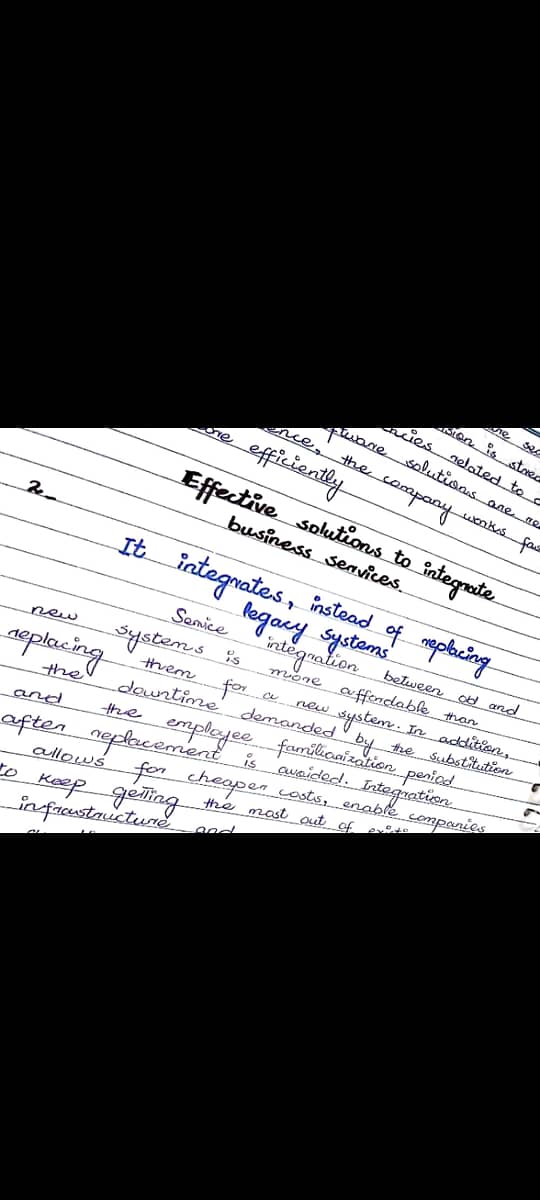 is stream
related to
software solutions are
the company works
more efficiently
2.
Effective solutions to integrate
business services.
It integrates, instead of replacing
legacy systems
Service integration between old and
new systems is more affordable than
replacing them for a new system. In addition,
the downtime demanded by the substitution
and the employee familiarization period
after replacement is avoided. Integration
allows for cheaper costs, enable companies
to keep getting the most out of
infraustructure and